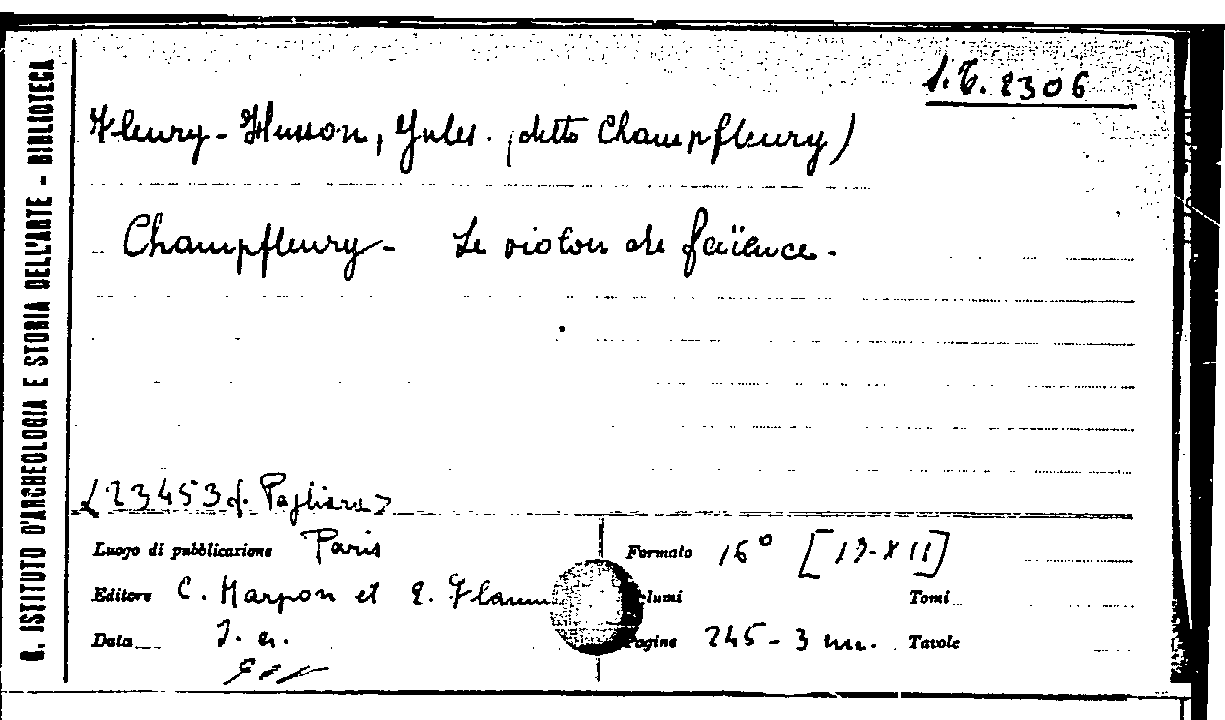 R. ISTITUTO D'ARCHEOLOGIA E STORIA DELL'ARTE - BIBLIOTECA
Fleury-Husson, Jules. (detto Champfleury)
Champfleury - Le violon de faïence.
<23453 f. Pagliara>
Luogo di pubblicazione Paris
Formato 16° [13-XII]
Editore C. Marpon et E. Flamm
lumi
Tomi
Data s. a.
Pagine 245-3 nn.
Tavole